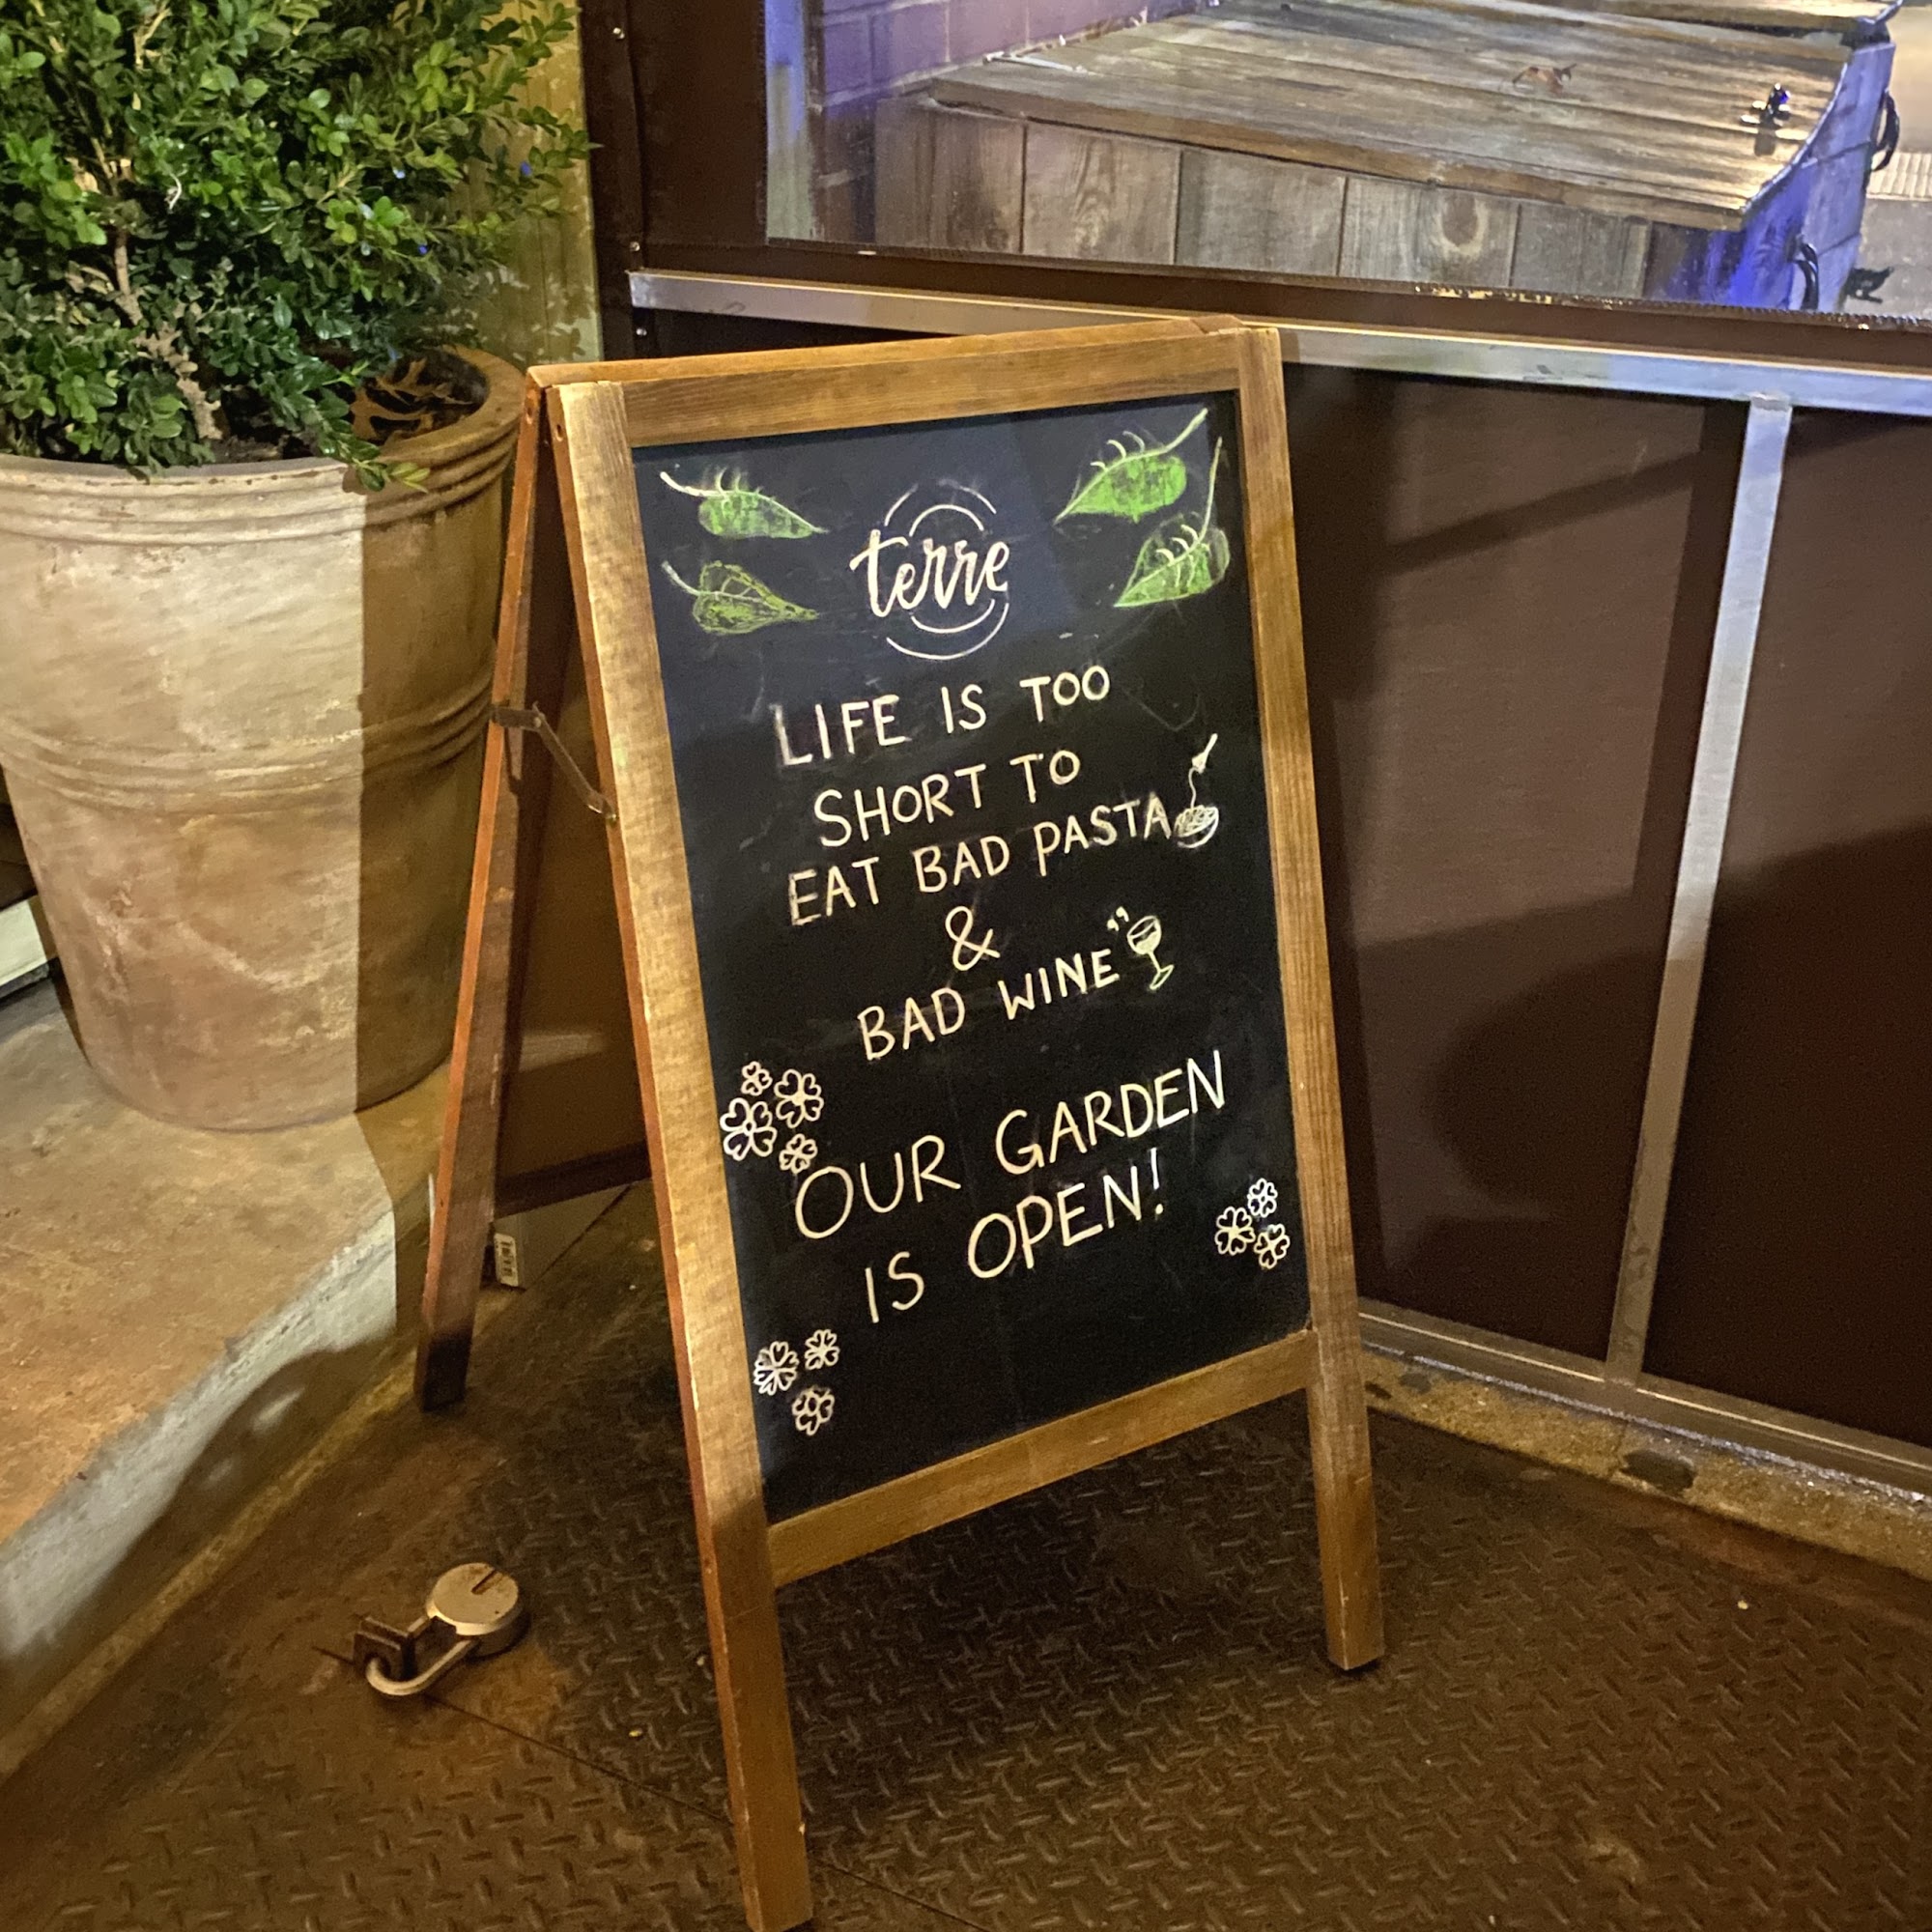 terre
LIFE IS TOO
SHORT TO
EAT BAD PASTA
&
BAD WINE"
OUR GARDEN
IS OPEN!